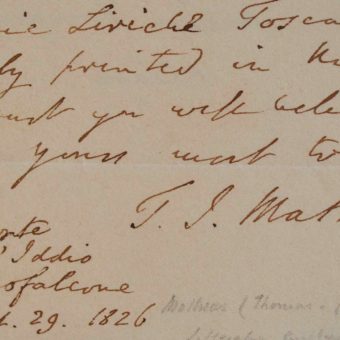 ie Liriche Tosca
ly printed in
ust you will bele
yours most t
T. J. Mat
nte
' Iddio
ofalcone
t. 29. 1826
Mathews ( Thomas